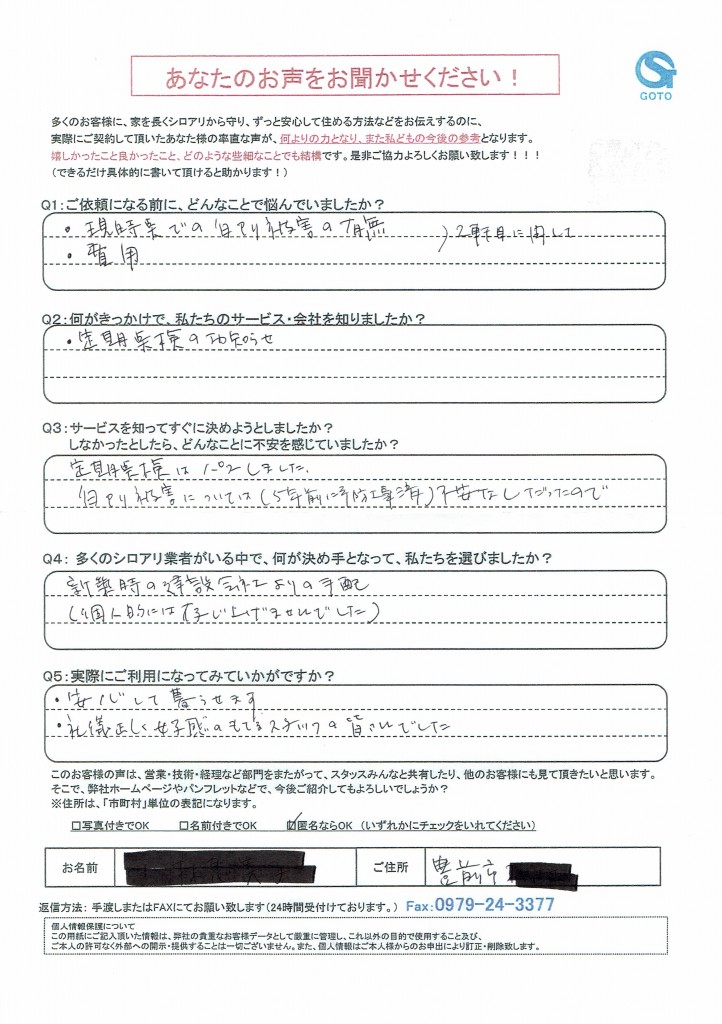 あなたのお声をお聞かせください！
GOTO
多くのお客様に、家を長くシロアリから守り、ずっと安心して住める方法などをお伝えするのに、
実際にご契約して頂いたあなた様の率直な声が、何よりの力となり、また私どもの今後の参考となります。
嬉しかったこと良かったこと、どのような些細なことでも結構です。是非ご協力よろしくお願い致します！！！
（できるだけ具体的に書いて頂けると助かります！）
Q1：ご依頼になる前に、どんなことで悩んでいましたか？
・現時点での白アリ被害の有無
・費用
）2軒目に関して
Q2：何がきっかけで、私たちのサービス・会社を知りましたか？
・定期点検のお知らせ
Q3：サービスを知ってすぐに決めようとしましたか？
しなかったとしたら、どんなことに不安を感じていましたか？
定期点検はパスしました。
白アリ被害については（5年前に予防工事済）不安なしだったので
Q4： 多くのシロアリ業者がいる中で、何が決め手となって、私たちを選びましたか？
新築時の建設会社よりの手配
（個人的には存じ上げませんでした）
Q5：実際にご利用になってみていかがですか？
・安心して暮らせます
・礼儀正しく好感のもてるスタッフの皆さんでした
このお客様の声は、営業・技術・経理など部門をまたがって、スタッスみんなと共有したり、他のお客様にも見て頂きたいと思います。
そこで、弊社ホームページやパンフレットなどで、今後ご紹介してもよろしいでしょうか？
※住所は、「市町村」単位の表記になります。
□写真付きでOK □名前付きでOK ☑匿名ならOK （いずれかにチェックをいれてください）
お名前 ご住所 豊前市
返信方法： 手渡しまたはFAXにてお願い致します（24時間受付けております。） Fax：0979-24-3377
個人情報保護について
この用紙にご記入頂いた情報は、弊社の貴重なお客様データとして厳重に管理し、これ以外の目的で使用すること及び、
ご本人の許可なく外部への開示・提供することは一切ございません。また、個人情報はご本人様からのお申出により訂正・削除致します。